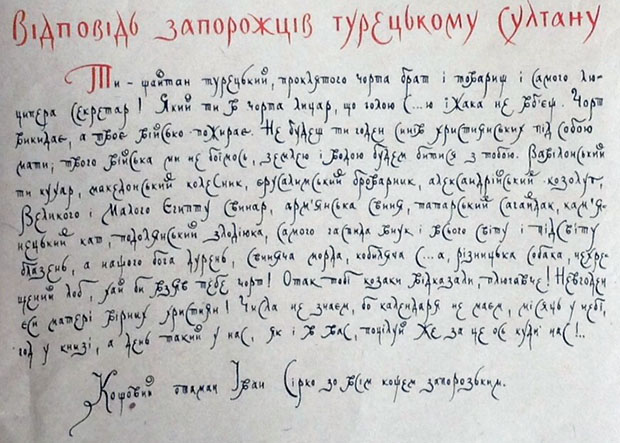 Відповідь запорожців турецькому султану
Ти - шайтан турецький, проклятого чорта брат і товариш і самого лю-
ципера секретар! Який ти в чорта лицар, що голою с...ю їжака не вб'єш. Чорт
викидає, а твоє військо пожирає. Не будеш ти годен синів христіянських під собою
мати; твого війська ми не боїмось, землею і водою будем битися з тобою. Вавілонський
ти кухар, македонський колесник, єрусалимський броварник, александрійський козолуп,
Великого і Малого Египту свинар, арм'янська свиня, татарський сагайдак, кам'я-
нецький кат, подолянський злодіюка, самого гаспида внук і всього світу і підсвіту
блазень, а нашого бога дурень, свиняча морда, кобиляча с...а, різницька собака, нехре-
щений лоб, хай би взяв тебе чорт! Отак тобі козаки відказали, плюгавче! Невгоден
єси матері вірних христіян! Числа не знаєм, бо календаря не маєм, місяць у небі,
год у книзі, а день такий у нас, як і в вас, поцілуй же за це ось куди нас!..
Кошовий отаман Іван Сірко зо всім кошем запорозьким.